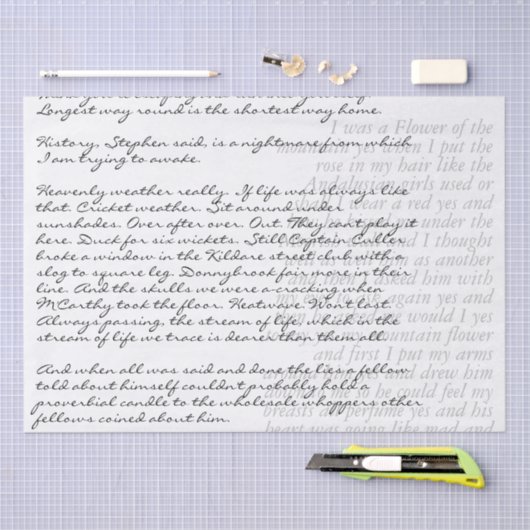 Longest way round is the shortest way home.
History, Stephen said, is a nightmare from which
I am trying to awake.
Heavenly weather really. If life was always like
that. Cricket weather. Sit around under
sunshades. Over after over. Out. They cant play it
here. Duck for six wickets. Still Captain Culler
broke a window in the Kildare street club with a
slog to square leg. Donnybrook fair more in their
line. And the skulls we were acracking when
MCarthy took the floor. Heatwave. Wont last.
Always passing, the stream of life, which in the
stream of life we trace is dearer than them all.
And when all was said and done the lies a fellow
told about himself couldnt probably hold a
proverbial candle to the wholesale whoppers other
fellows coined about him.
I was a Flower of the
mountain yes when I put the
rose in my hair like the
Andalusian girls used or
shall I wear a red yes and
how he kissed me under the
wall and I thought
well as well him as another
and then I asked him with
my eyes to ask again yes and
then he asked me would I yes
to say yes my mountain flower
and first I put my arms
around him yes and drew him
down to me so he could feel my
breasts all perfume yes and his
heart was going like mad and